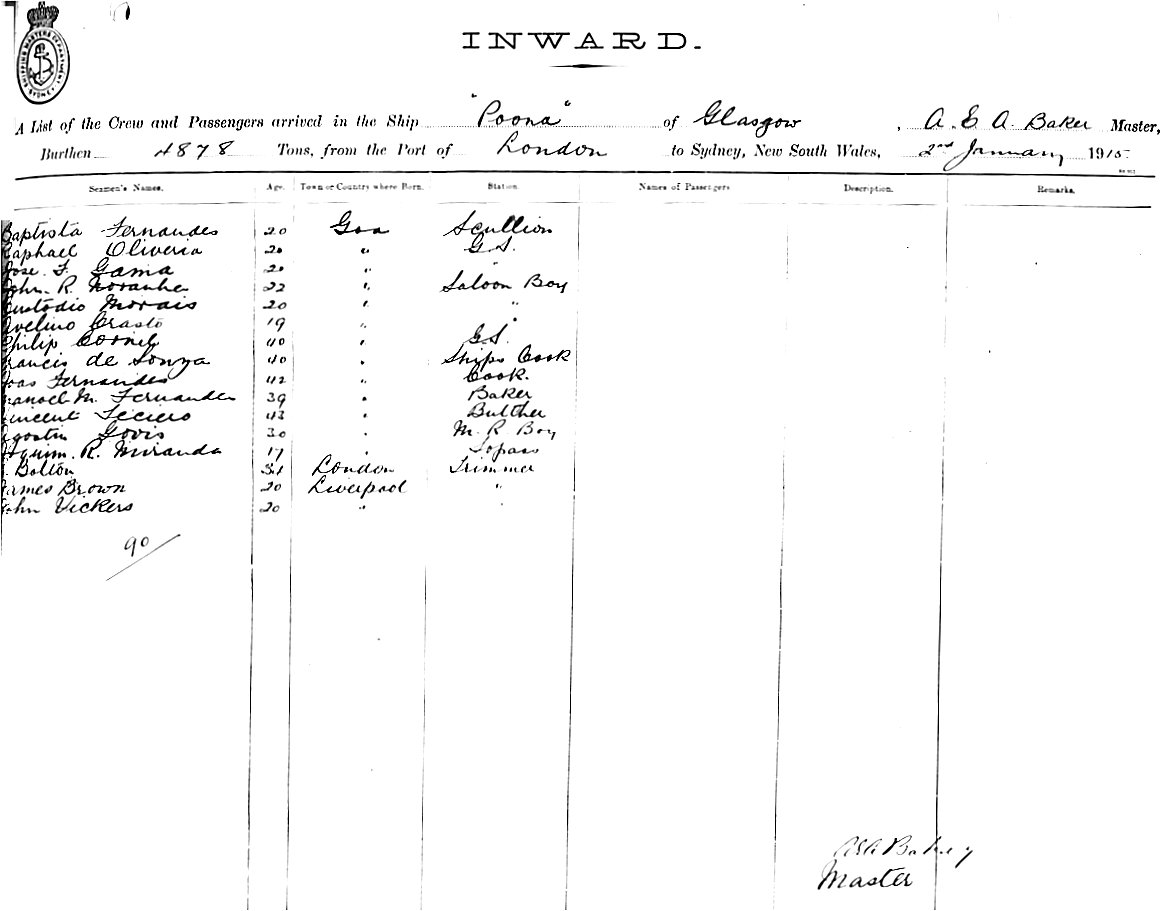 SHIPPING MASTERS DEPARTMENT SYDNEY
INWARD.
A List of the Crew and Passengers arrived in the Ship "Poona" of Glasgow, A. E. A. Baker Master,
Burthen 4878 Tons, from the Port of London to Sydney, New South Wales, 2nd January 1915
Seamen's Names. Age. Town or Country where Born. Station. Names of Passengers Description. Remarks.
Baptista Fernandes 20 Goa Scullion
Raphael Oliveria 20 " G.S.
Jose. F. Gama 20 " "
John. R. Noranha 22 " Saloon Boy
Custodio Morais 20 " "
Avelino Crasto 19 " "
Philip Cornel 40 " G.S.
Francis de Sonza 40 " Ships Cook
Joas Fernandes 42 " Cook.
Manoel M. Fernandes 39 " Baker
Vincent Teciero 43 " Butcher
Agostin Govis 30 " M. R Boy
Joquim. R. Miranda 17 " Topass
Bolton 31 London Trimmer
James Brown 20 Liverpool "
John Vickers 20 " "
90
A E A Baker
Master